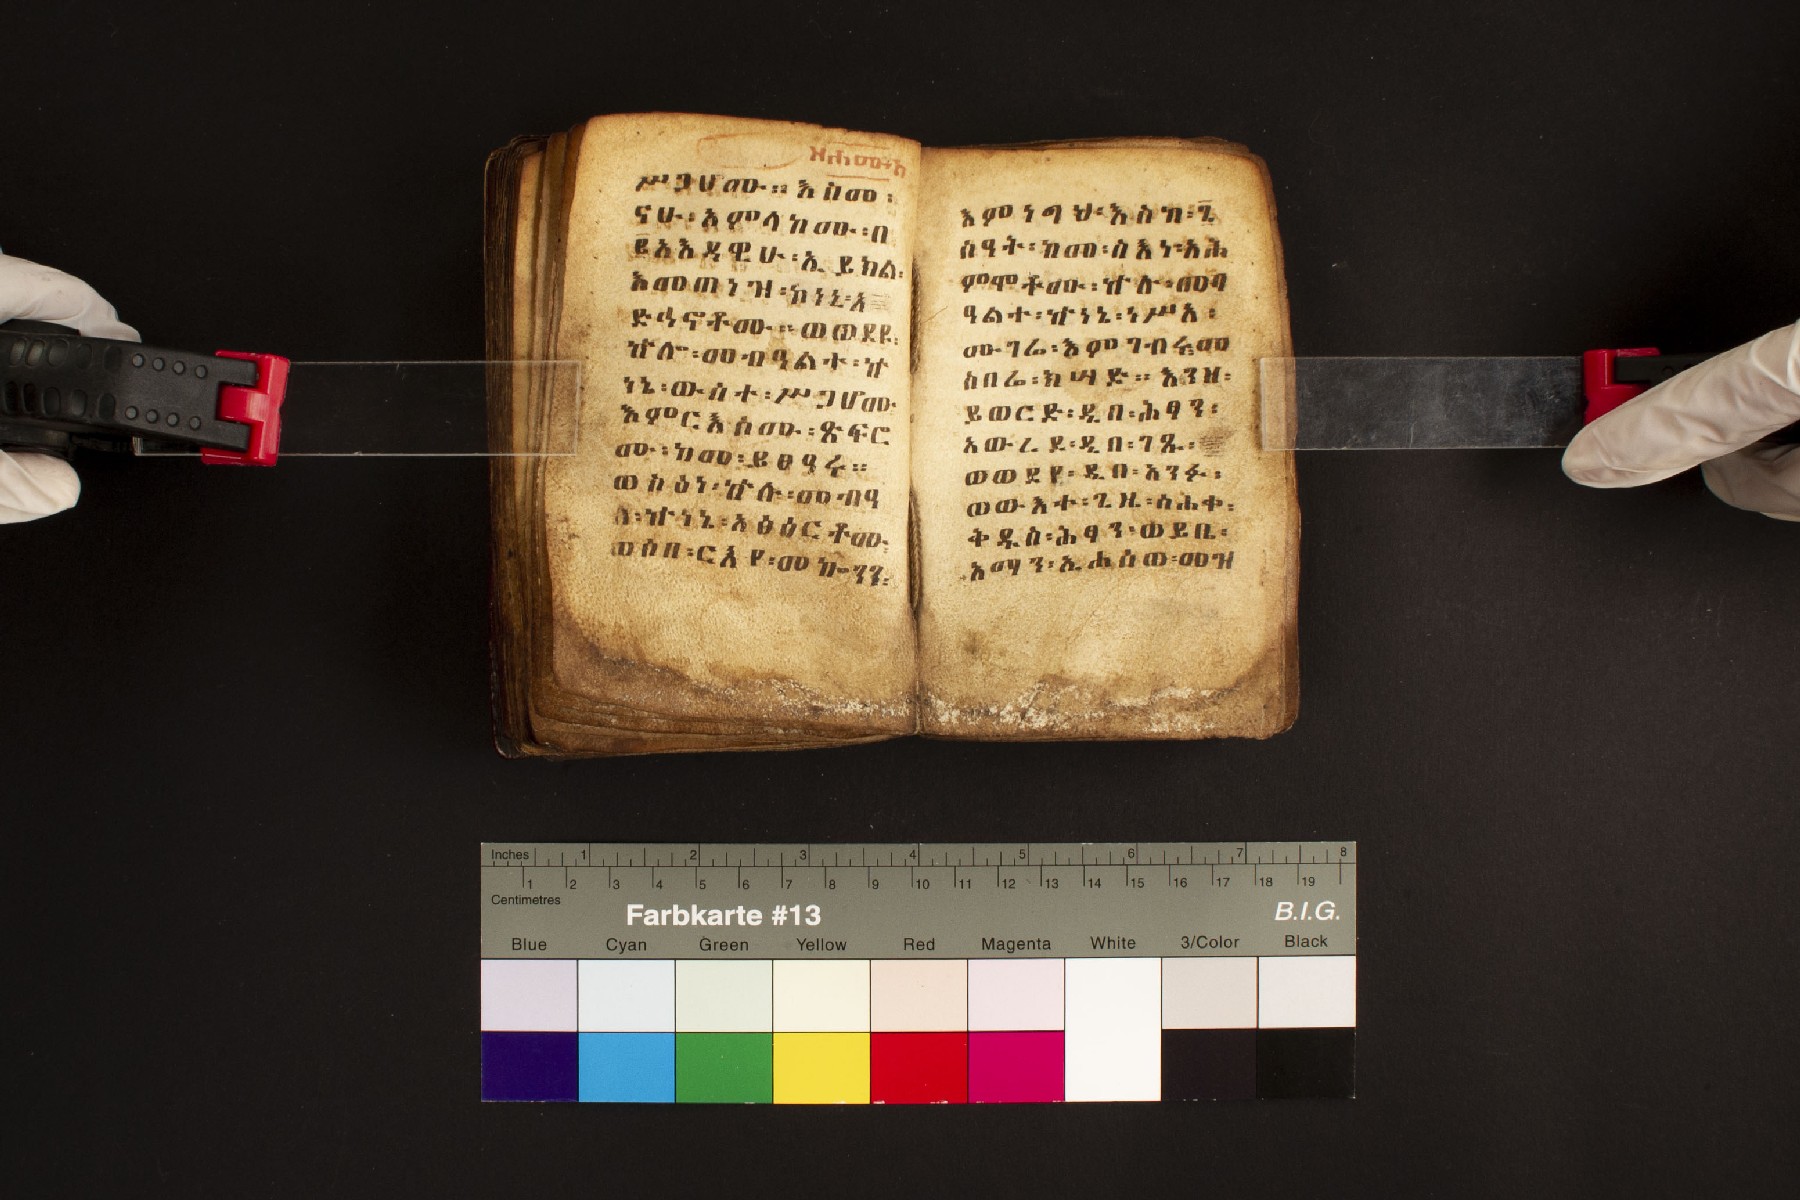 ሥጋሆሙ። እስመ፡
ናሁ፡አምላክሙ፡በ
፪አእዳዊሁ፡ኢይክል፡
እመጠነዝ፡ከነኒ፡አ
ድኅኖቶሙ። ወወደዩ፡
ኵሎ፡መብዓልተ፡ኵ
ነኔ፡ውስተ፡ሥጋሆሙ
እምርእስሙ፡ጽፍሮ
ሙ፡ከመ፡ይፀዓሩ።
ወስዕነ፡ኵሉ፡መብዓ
ለ፡ኵነኔ፡አፅዕሮቶሙ፡
ወሶበ፡ርእየ፡መኰንን፡
እምነግህ፡እስከ፡፫
ሰዓት፡ከመ፡ስእነ፡አሕ
ምሞቶሙ፡ኵሉ፡መባ
ዓልተ፡ኵነኔ፡ነሥአ፡
ሙገሬ፡እምገብሩ፡መ
ስበሬ፡ክሣድ። እንዘ፡
ይወርድ፡ዲበ፡ሕፃን፡
አውረደ፡ዲበ፡ገጹ፡
ወወደየ፡ዲበ፡አንፉ፡
ወውእተ፡ጊዜ፡ሰሐቀ፡
ቅዱስ፡ሕፃን፡ወይቤ፡
አማን፡ኢሐሰወ፡መዝ
Inches 1 2 3 4 5 6 7 8
1 2 3 4 5 6 7 8 9 10 11 12 13 14 15 16 17 18 19
Centimetres
Farbkarte #13 B.I.G.
Blue Cyan Green Yellow Red Magenta White 3/Color Black